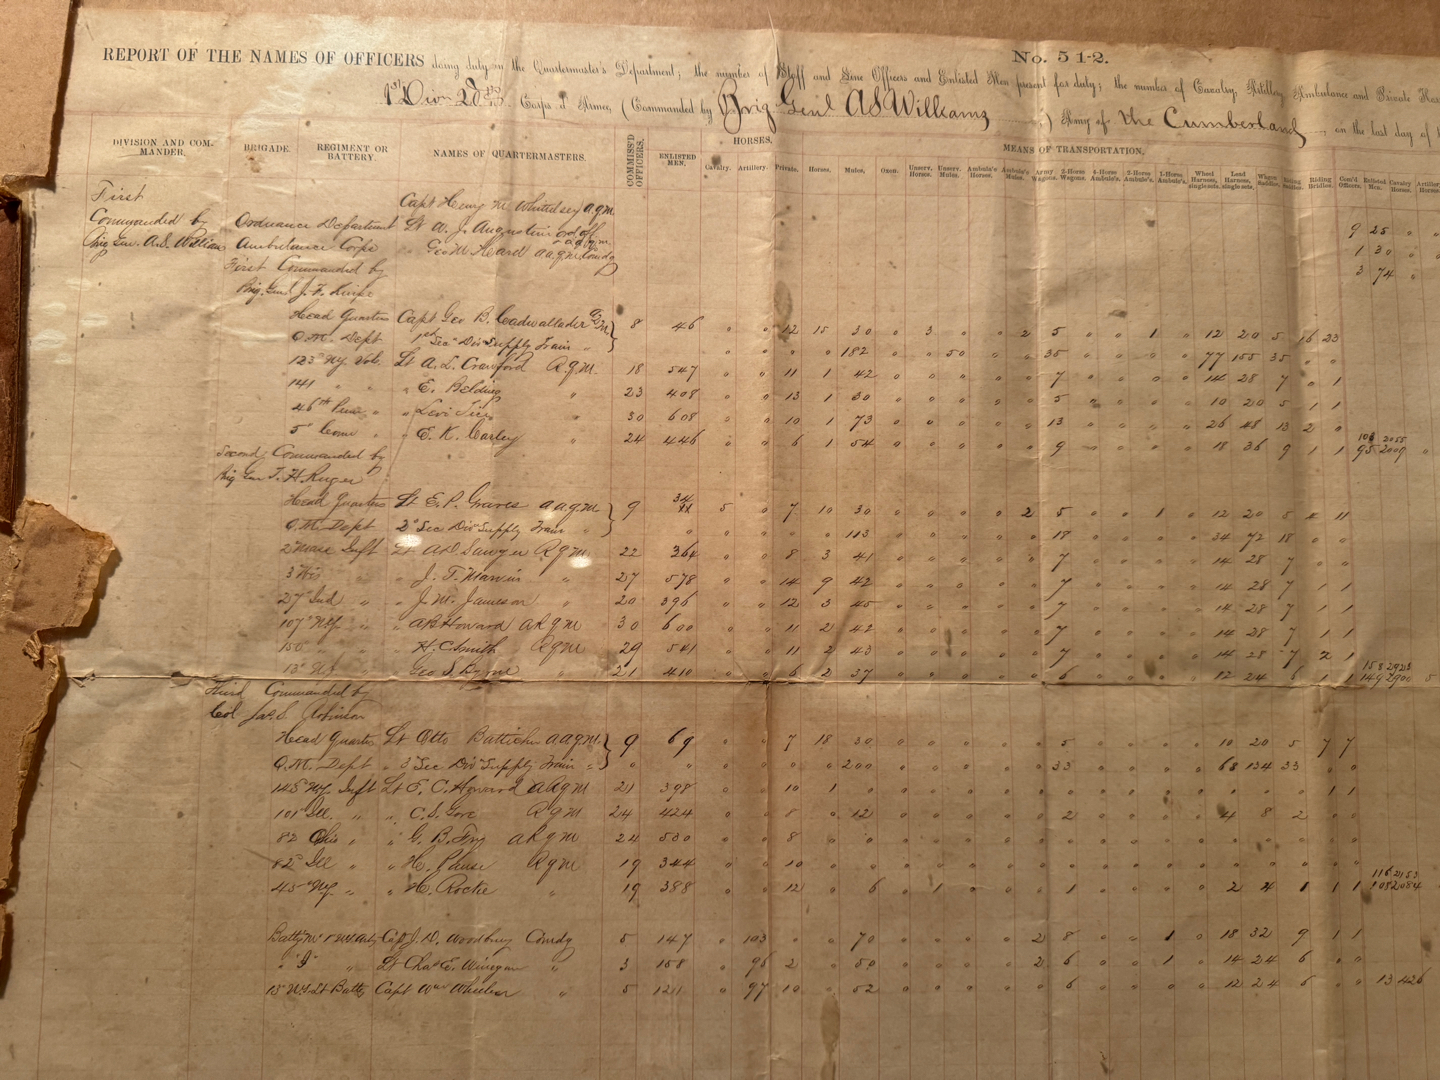 No. 5 1-2.
REPORT OF THE NAMES OF OFFICERS doing duty in the Quartermaster's Department; the number of Staff and Line Officers and Enlisted Men present for duty; the number of Cavalry, Artillery, Ambulance and Private
1st Div 20th Corps d'Armee, (Commanded by Brig Genl A S Williams ) Army of the Cumberland, on the last day of
HORSES. MEANS OF TRANSPORTATION.
DIVISION AND COMMANDER. BRIGADE. REGIMENT OR BATTERY. NAMES OF QUARTERMASTERS. COMMISS'D OFFICERS. ENLISTED MEN. Cavalry. Artillery. Private. Horses. Mules. Oxen. Unserv. Horses. Unserv. Mules. Ambula's Horses. Ambula's Mules. Army Wagons. 2-Horse Wagons. 4-Horse Ambula's. 2-Horse Ambula's. 1-Horse Ambula's. Wheel Harness, single sets. Lead Harness, single sets. Wagon Saddles. Riding Saddles. Riding Bridles. Com'd Officers. Enlisted Men. Cavalry Horses.
First Capt Henry M Whittelsey a.q.m.
Commanded by Ordnance Department Lt A. J. Augustin 9 25 " "
Brig. Gen. A.S. Williams Ambulance Corps " Geo M. Heard a a.q.m. 1 30 "
First Commanded by 3 74 "
Brig. Genl J. F. Knipe
Head Quarters Capt Geo B. Cadwallader 8 46 " " 12 15 30 " 3 " " 2 5 " " 1 " 12 20 5 16 23
Q.M. Dept 1st Sec Div Supply Train " " " " " " 182 " " 50 " " 35 " " " " 77 155 35 " "
123 NY Vol. Lt A. L. Crawford R.q.m. 18 547 " " 11 1 42 " " " " " 7 " " " " 14 28 7 " 1
141 " " " E. Belding " 23 408 " " 13 1 30 " " " " " 5 " " " " 10 20 5 1 1
46th Penn " " Levi " 30 608 " " 10 1 73 " " " " " 13 " " " " 26 48 13 2 "
5" Conn " " E. K. Carley " 24 446 " " 6 1 54 " " " " " 9 " " " " 18 36 9 1 1 95 2009
Second; Commanded by
Brig Gen T. H. Ruger
Head Quarters Lt E. P. Graves a a q m 9 34 5 " 7 10 30 " " " " 2 5 " " 1 " 12 20 5 4 11
Q.M. Dept 2" Sec Div Supply Train " " " " " " " 113 " " " " " 18 " " " " 34 72 18 " "
2" Mass Inft Lt A D Sawyer R q m 22 364 " " 8 3 41 " " " " " 7 " " " " 14 28 7 " "
3 Wis " " J. T. Marvin " 27 578 " " 14 9 42 " " " " " 7 " " " " 14 28 7 1 1
27" Ind " " J. M. Jameson " 20 396 " " 12 3 45 " " " " " 7 " " " " 14 28 7 1 1
107" NY " " A B Howard a R q m 30 600 " " 11 2 42 " " " " " 7 " " " " 14 28 7 1 1
150 " " " H. C. Smith R q m 29 541 " " 11 2 43 " " " " " 7 " " " " 14 28 7 2 1
13" NJ " " Geo S. Byrne " 21 410 " " 6 2 37 " " " " " 6 " " " " 12 24 6 1 1 149 2900 5
Third Commanded by
Col Jas. S. Robinson
Head Quarters Lt Otto a a q m 9 69 " " 7 18 30 " " " " " 5 " " " " 10 20 5 7 7
Q.M. Dept " 3 Sec Div Supply Train " " " " " " " 200 " " " " " 33 " " " " 68 134 33 " "
145" NY Inft Lt E. C. Howard a R q m 21 398 " " 10 1 " " " " " " " " " " " " " " 1 1
101" Ill. " " C. S. Gore R q m 24 424 " " 8 " 12 " " " " " 2 " " " " 4 8 2 " "
82 Ohio " " G. B. Fry a R q m 24 " " 8 " " " " " " " " " " " " " " " " "
82" Ill " " H. R q m 19 344 " " 10 " " " " " " " " " " " " " " " " "
45" NY " " H. Rocke " 19 388 " " 12 " 6 " 1 " " " 1 " " " " 2 4 1 1 1 108 2084
Batty M 1 NY Arty Capt J. D. Woodbury Comdg 5 147 " 103 " " 70 " " " " 2 8 " " 1 " 18 32 9 1 1
" "I" " Lt Chas E. Winegar " 3 158 " 96 2 " 50 " " " " 2 6 " " 1 " 14 24 6 " "
13" NY Lt Batty Capt Wm Wheeler " 5 " 97 10 " 52 " " " " " 6 " " " " 12 24 6 " " 13 426